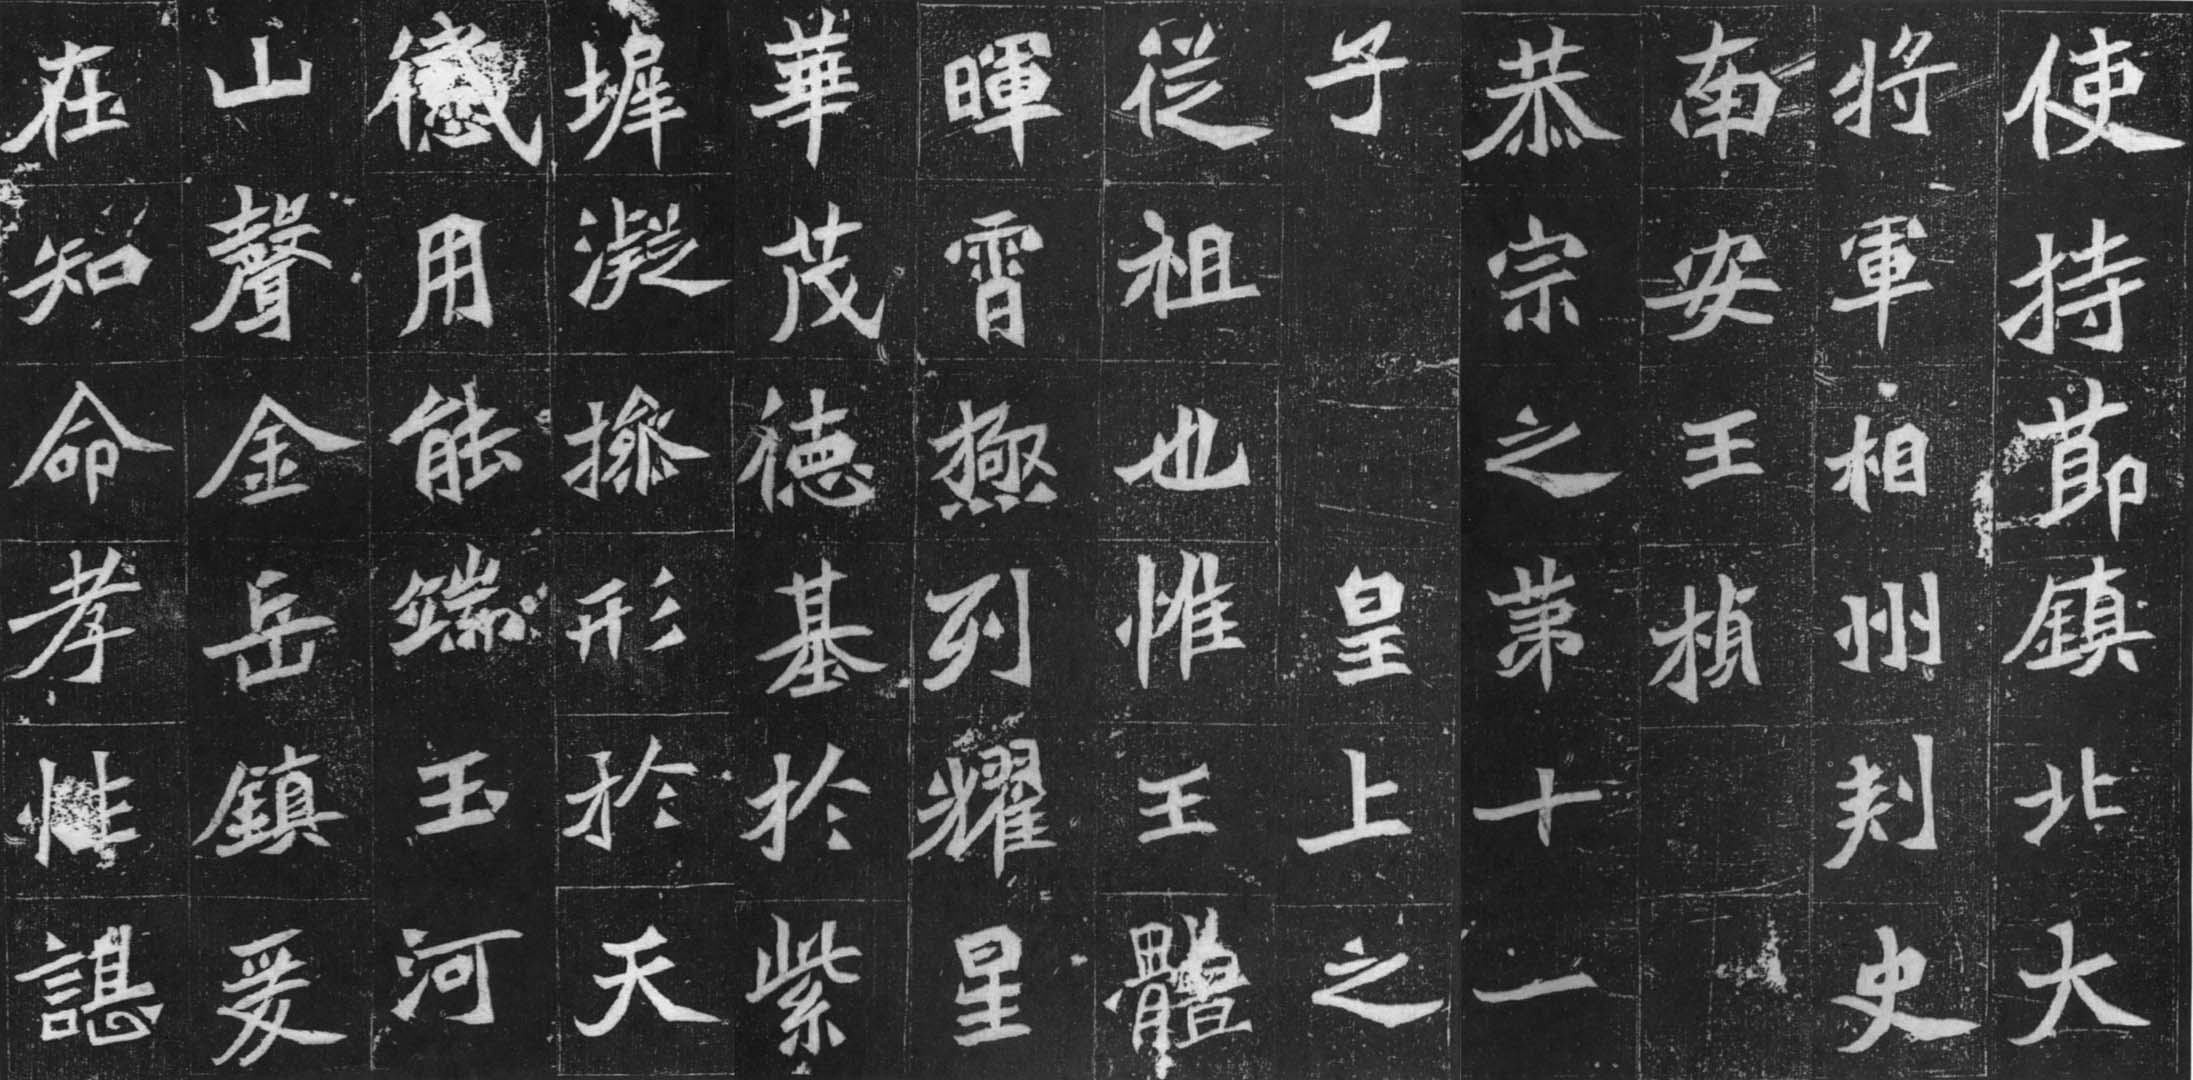 使持節鎮北大
將軍相州刺史
南安王楨
恭宗之第十一
子皇上之
從祖也惟王體
暉霄極列耀星
華茂德基於紫
墀凝操形於天
感用能端玉河
山聲金岳鎮爰
在知命孝性諶